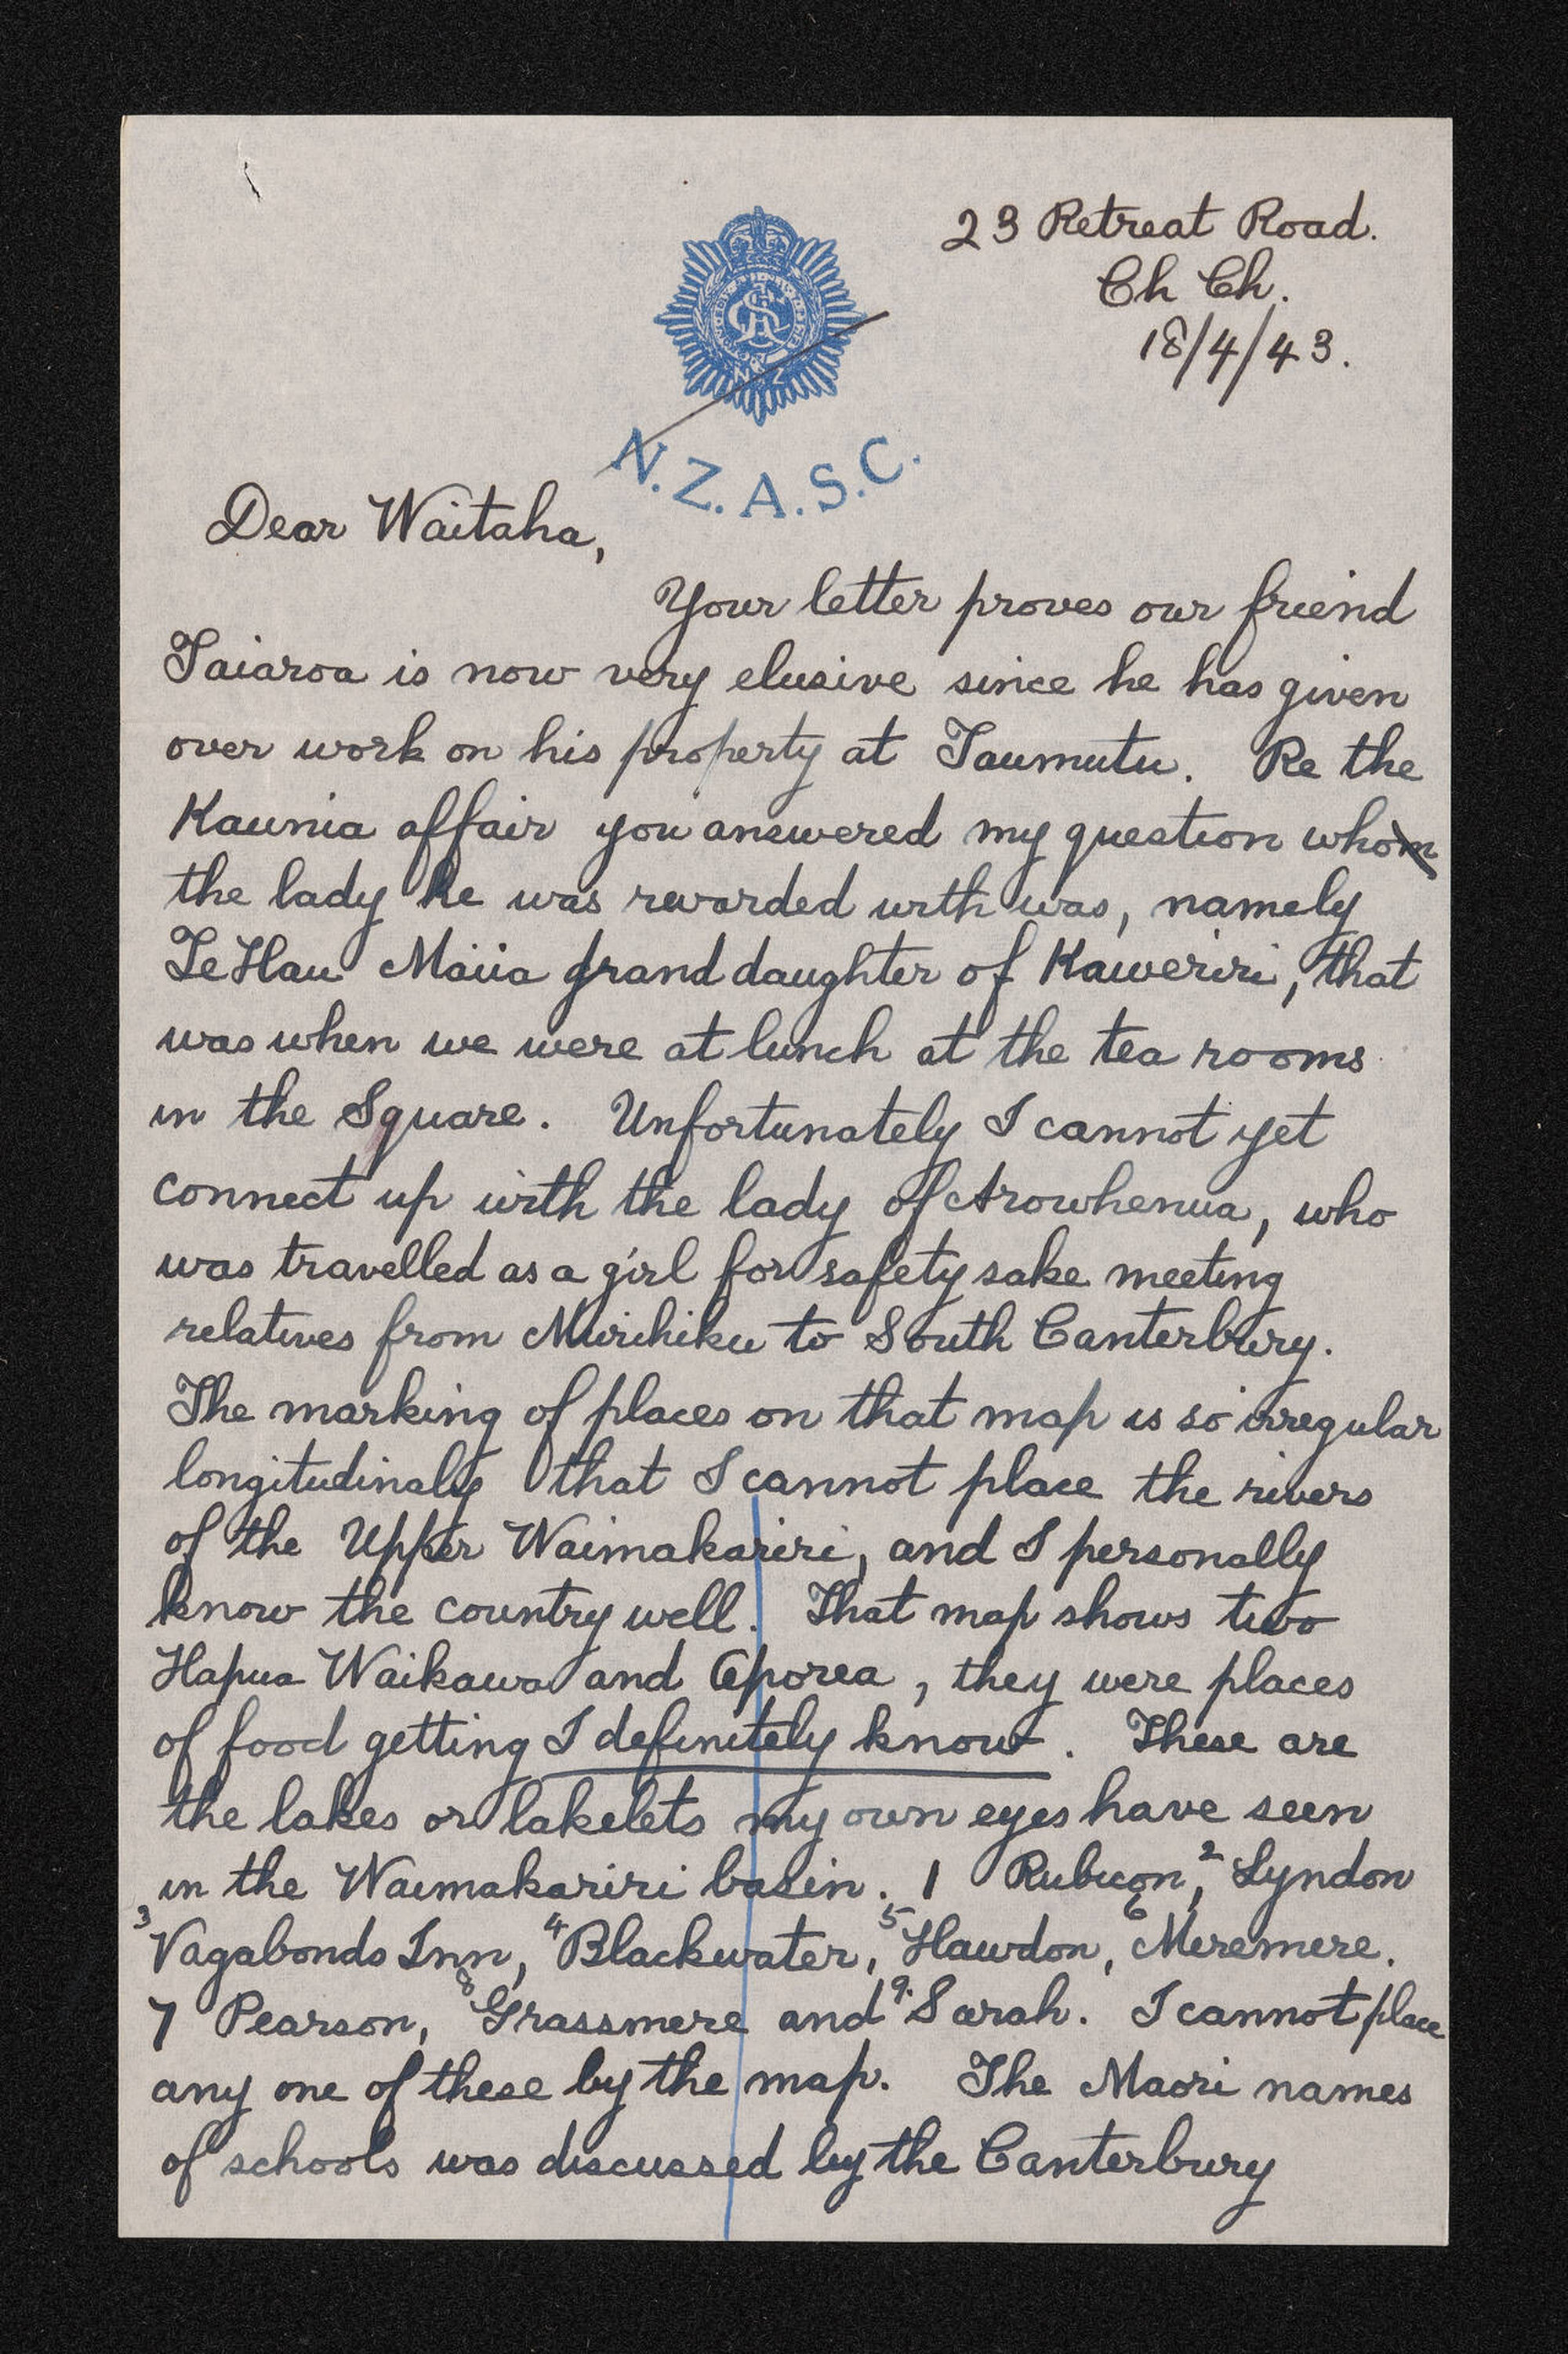 23 Retreat Road.
Ch Ch.
18/4/43.
N.Z.A.S.C.
Dear Waitaha,
Your letter proves our friend
Taiaroa is now very elusive since he has given
over work on his property at Taumutu. Re the
Kaunia affair you answered my question who
the lady he was rewarded with was, namely
Te Hau Maiia grand daughter of Kaweriri, that
was when we were at lunch at the tea rooms
in the Square. Unfortunately I cannot yet
connect up with the lady of Arowhenua, who
was travelled as a girl for safety sake meeting
relatives from Murihiku to South Canterbury.
The marking of places on that map is so irregular
longitudinaly that I cannot place the rivers
of the Upper Waimakariri, and I personally
know the country well. That map shows two
Hapua Waikawa and Aporea, they were places
of food getting I definitely know. These are
the lakes or lakelets my own eyes have seen
in the Waimakariri basin. 1 Rubicon, 2 Lyndon
3 Vagabonds Inn, 4 Blackwater, 5 Hawdon, 6 Meremere.
7 Pearson, 8 Grassmere and 9. Sarah. I cannot place
any one of these by the map. The Maori names
of schools was discussed by the Canterbury